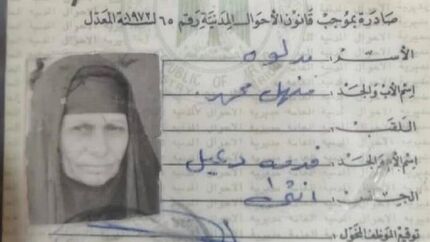 صادرة بموجب قانون الأحوال المدنية رقم ٦٥ لسنة ١٩٧٢ المعدل
الأسم:
إسم الأب والجد: منهل محمد
اللقب:
إسم الأم والجد:
الجنس: انثى
توقيع الموظف المخول: